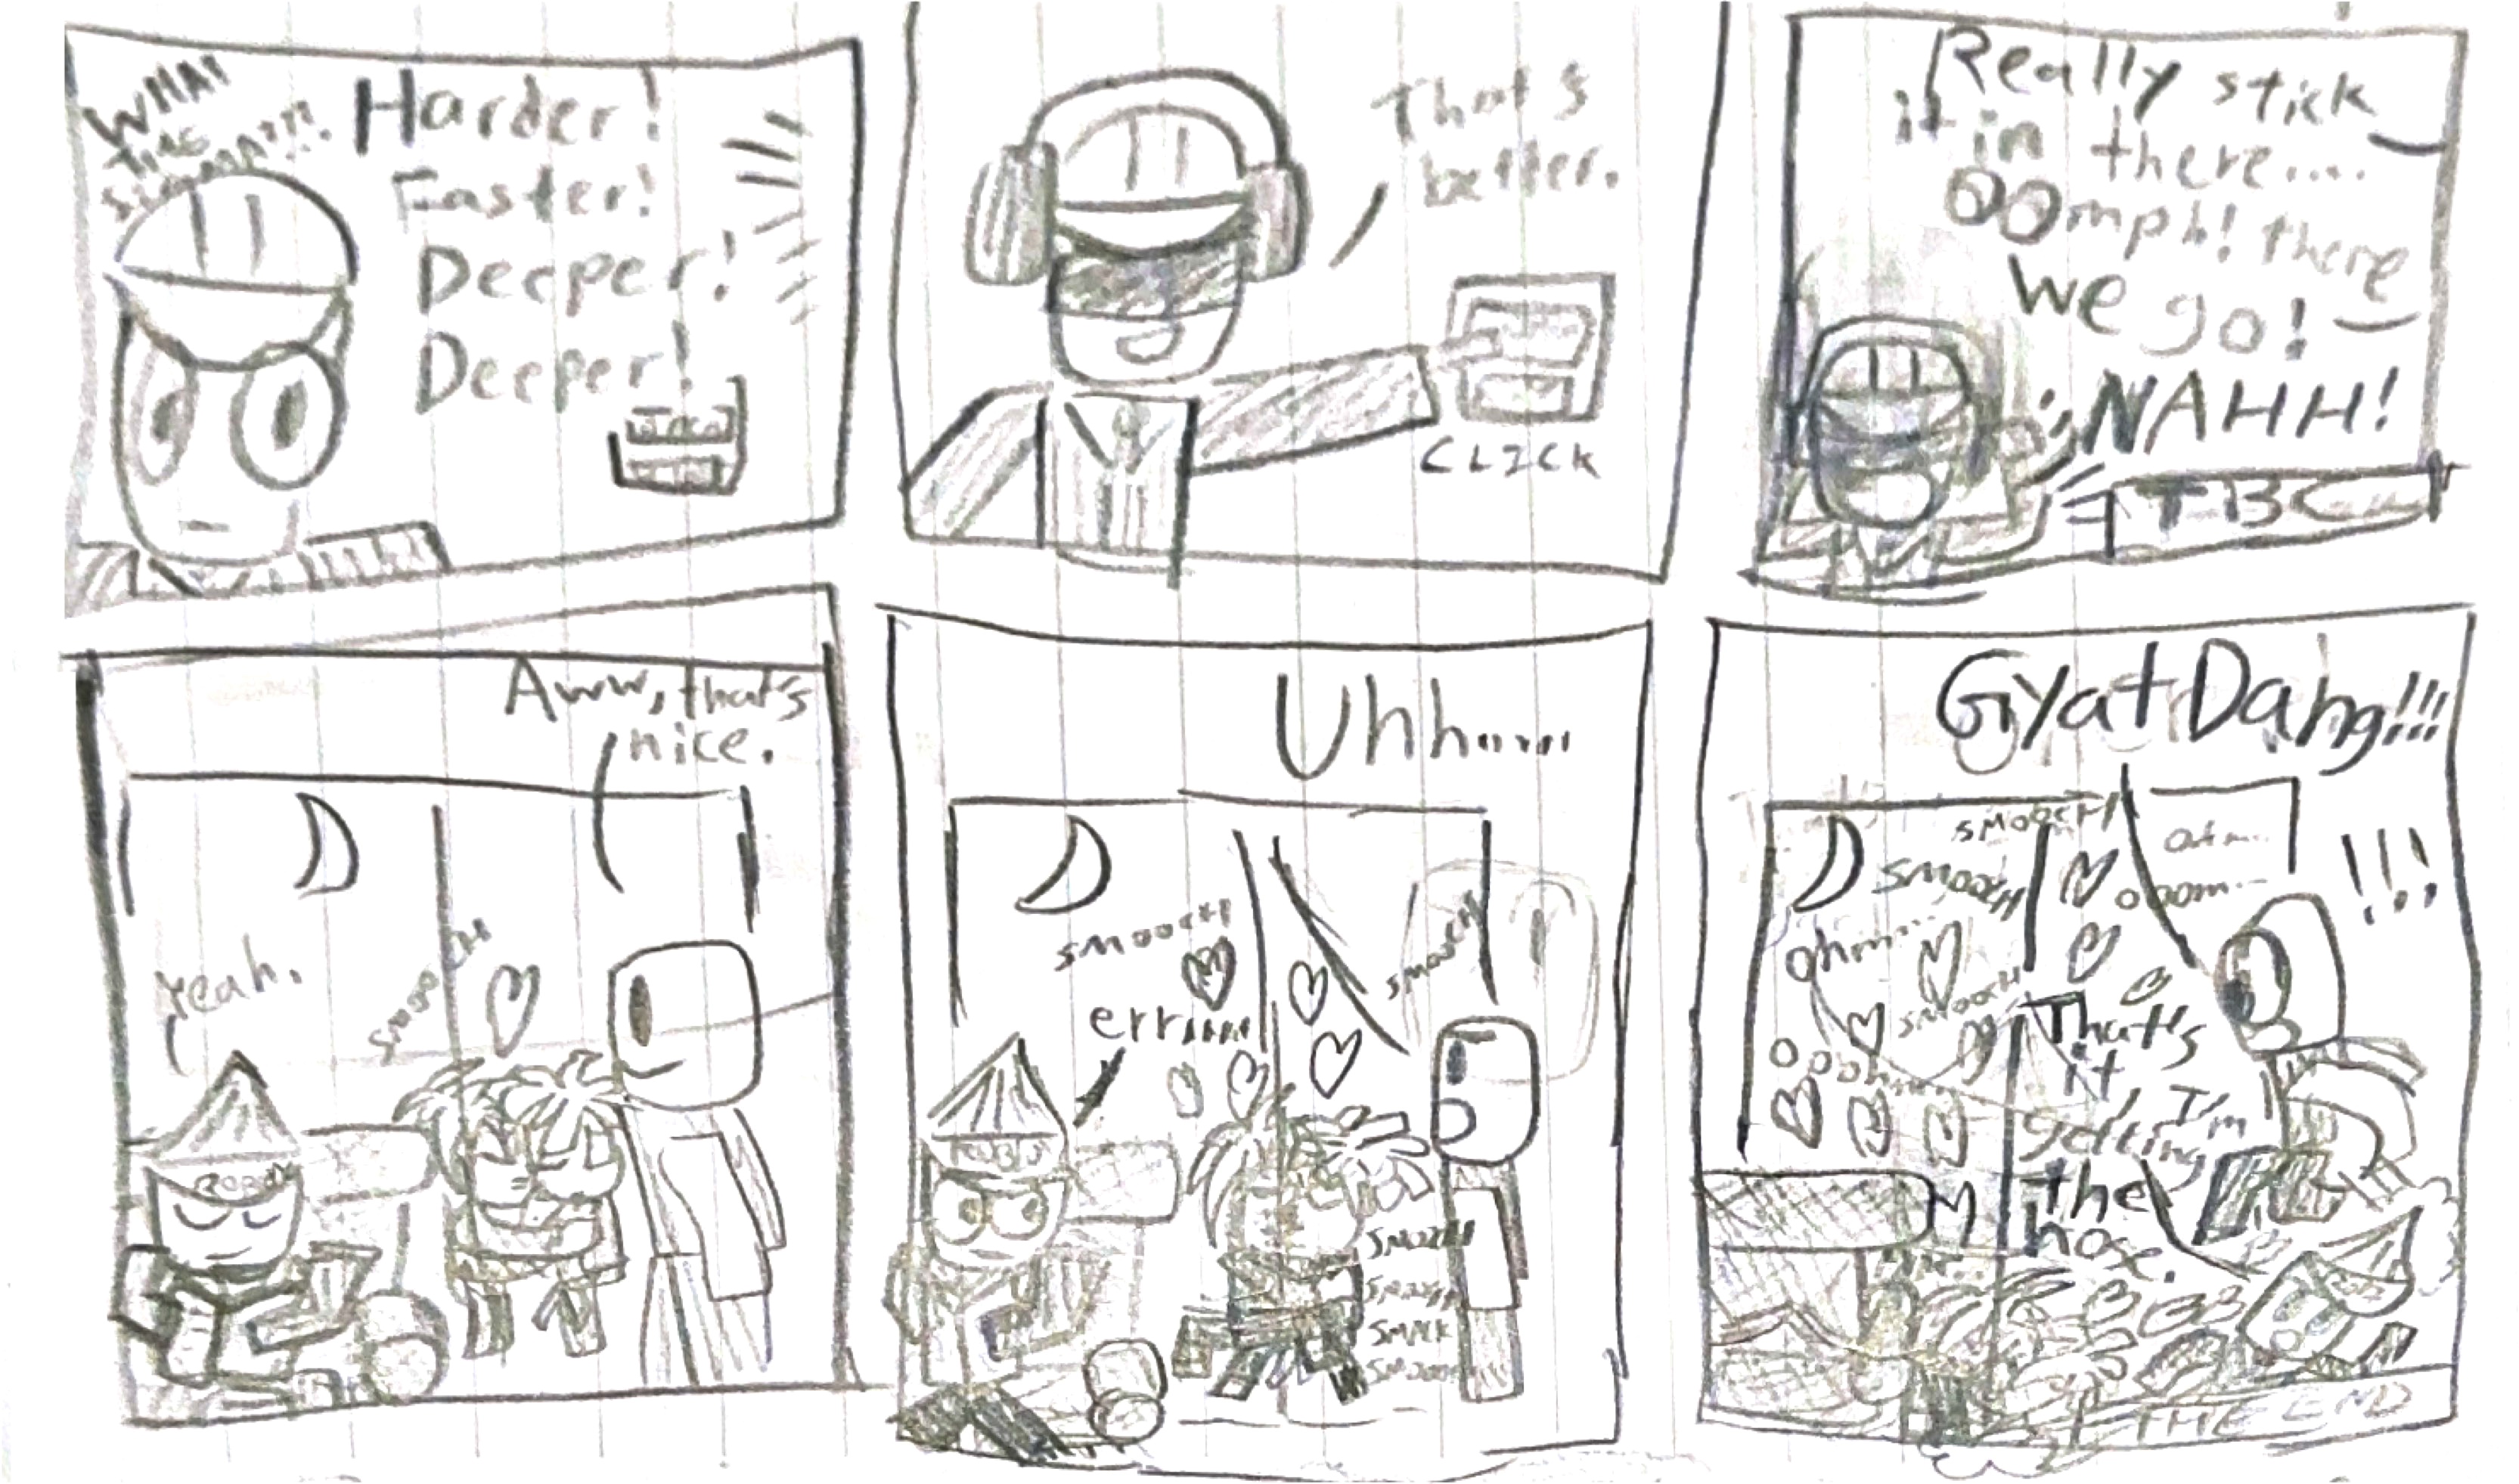 WHAT
THE
Harder!
Faster!
Deeper!
Deeper!
That's
better.
CLICK
Really stick
it in there....
OOmph! there
we go!
NAHH!
TBC
Aww, that's
nice.
Yeah.
SMOOCH
Uhh......
SMOOCH
SMOOCH
err.....
SMOOCH
SMACK
Gyat Dang!!!
SMOOCH
SMOOCH
!!!
Ohm....
SMOOCH
That's
it, I'm
getting
the
hose.
THE END